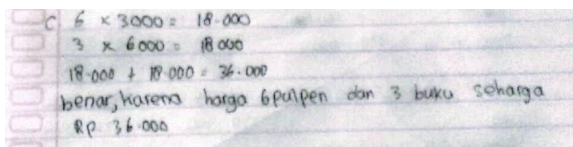 C 6 x 3000 = 18.000
3 x 6000 = 18000
18.000 + 18.000 = 36.000
benar, karena harga 6 pulpen dan 3 buku seharga
Rp. 36.000